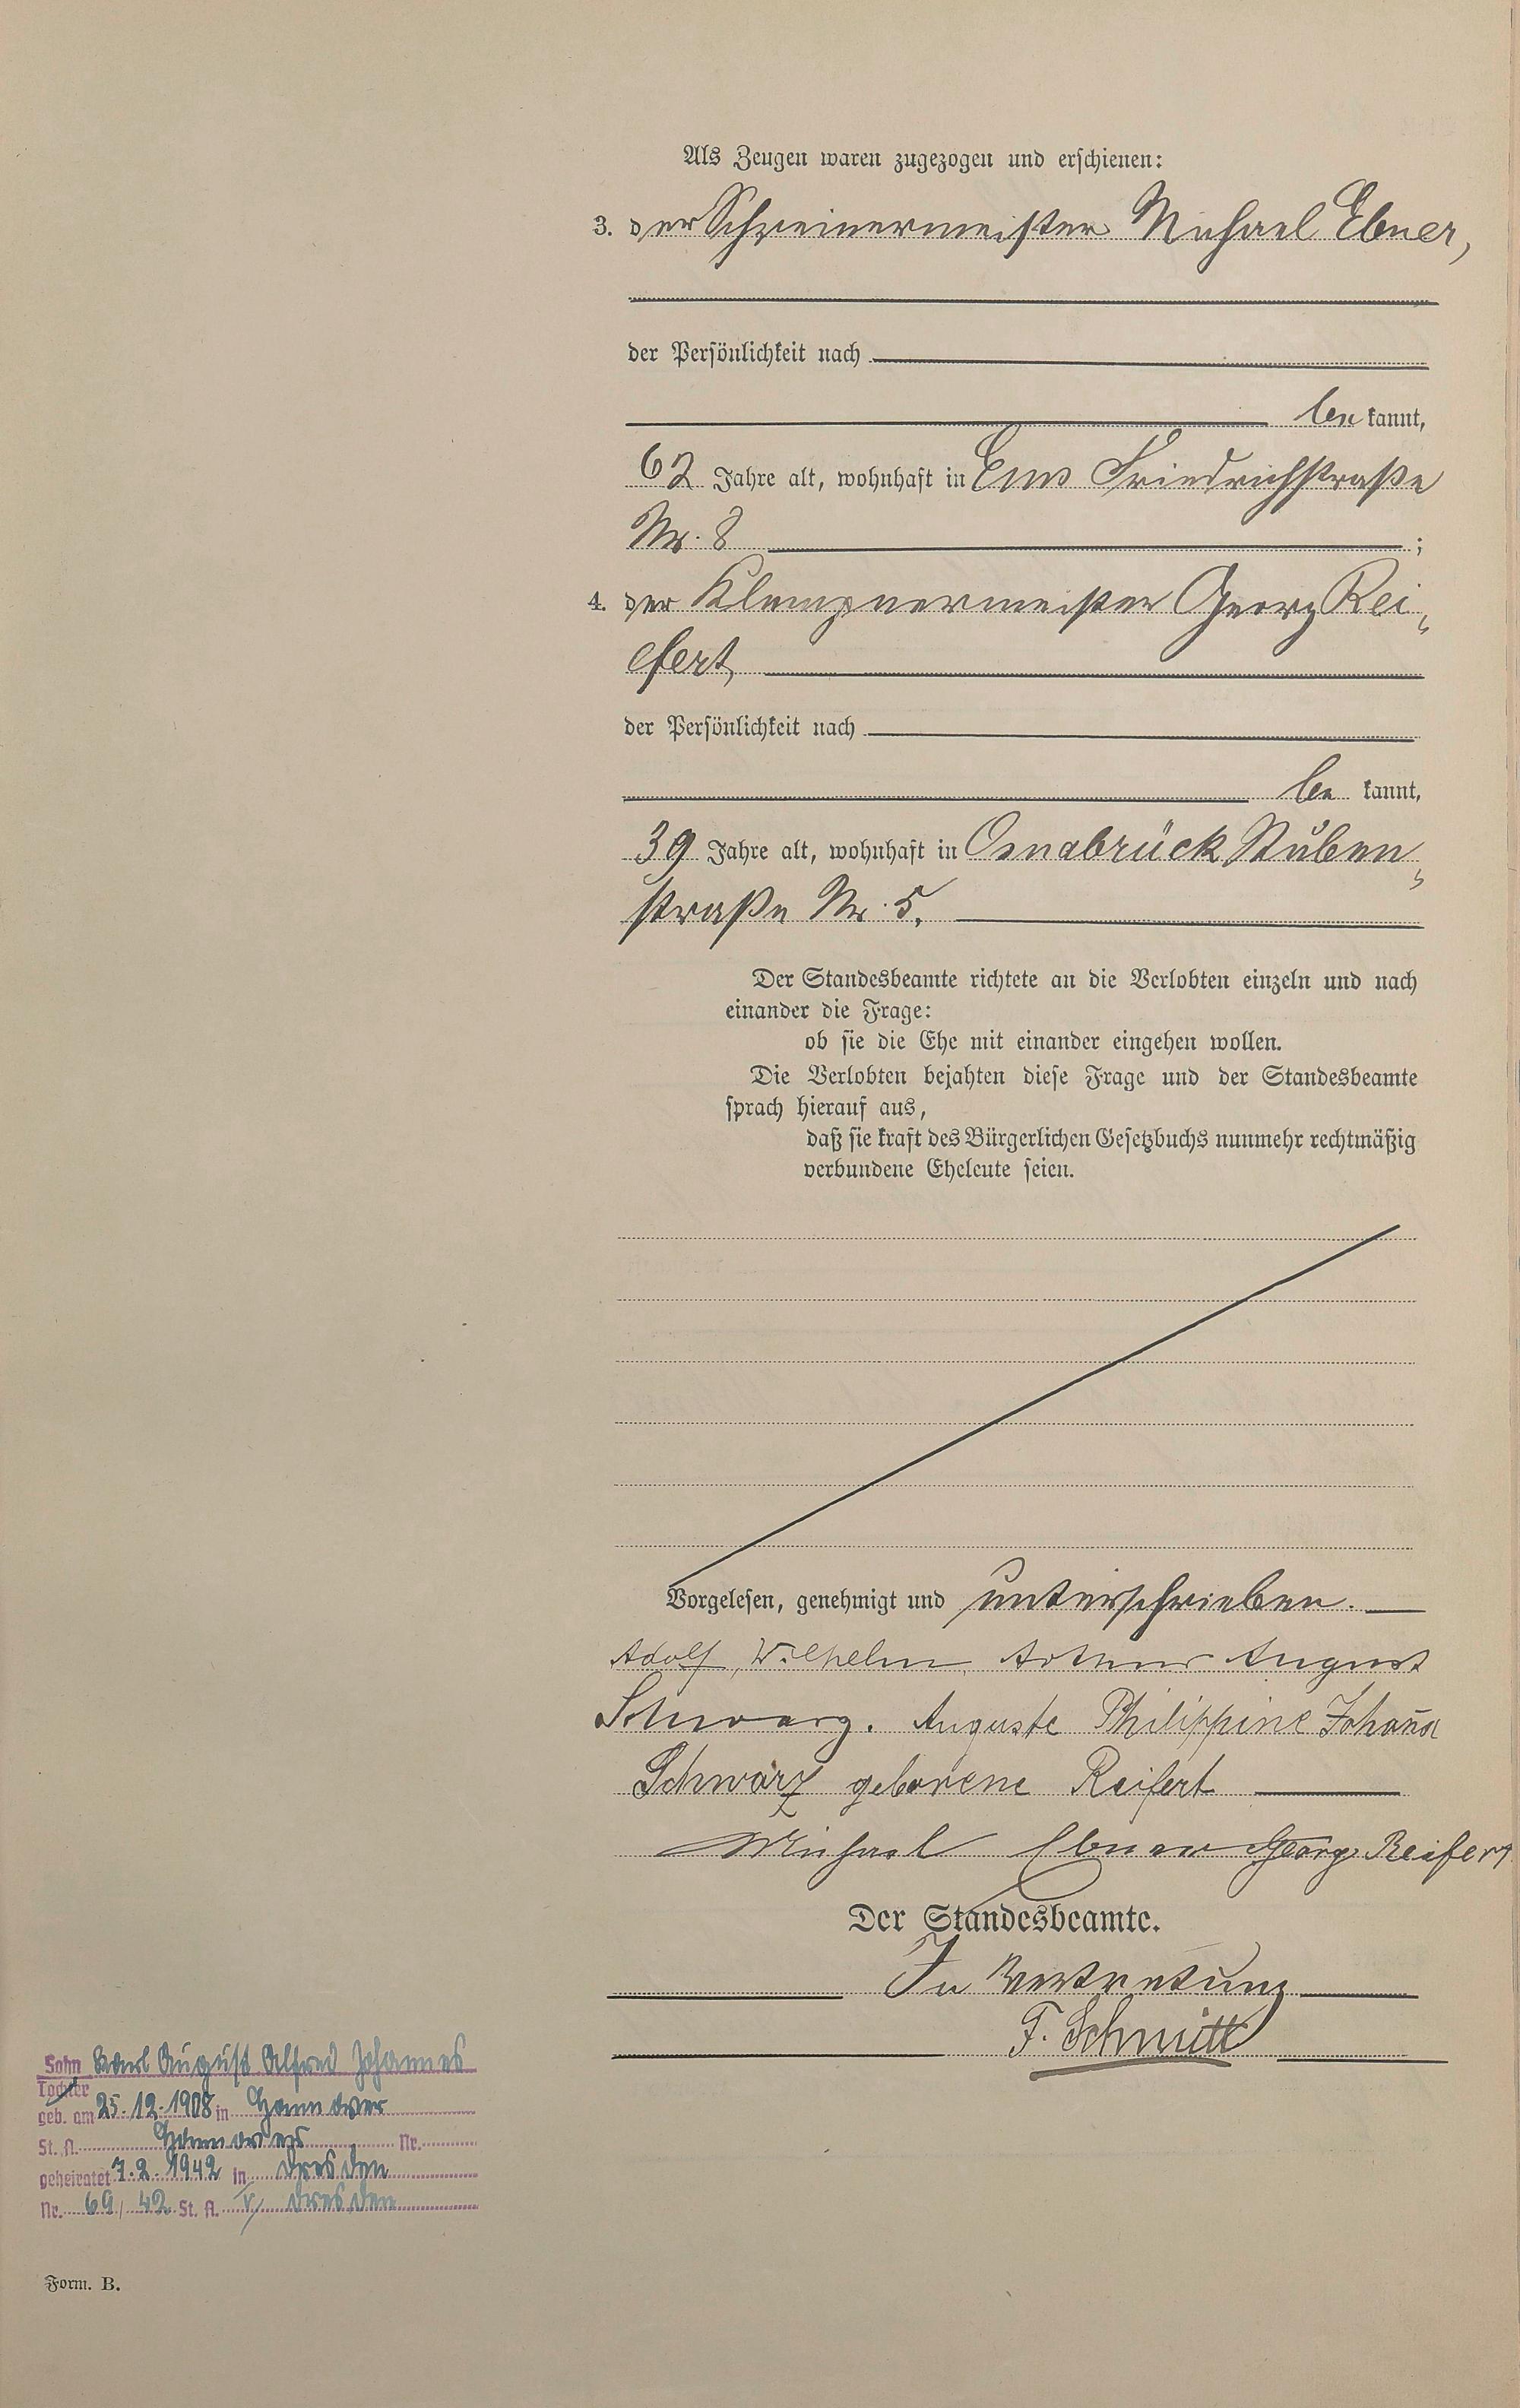 Als Zeugen waren zugezogen und erschienen:
3. der Schreinermeister Michael Ebner,
der Persönlichkeit nach
be kannt,
62 Jahre alt, wohnhaft in Ems Friedrichstraße
Nr. 8 ;
4. der Klempnermeister Georg Rei-
fert,
der Persönlichkeit nach
be kannt,
39 Jahre alt, wohnhaft in Osnabrück Stuben-
straße Nr. 5.
Der Standesbeamte richtete an die Verlobten einzeln und nach
einander die Frage:
ob sie die Ehe mit einander eingehen wollen.
Die Verlobten bejahten diese Frage und der Standesbeamte
sprach hierauf aus,
daß sie kraft des Bürgerlichen Gesetzbuchs nunmehr rechtmäßig
verbundene Eheleute seien.
Vorgelesen, genehmigt und unterschrieben.
Adolf, Wilhelm Arthur August
Schwarz. Auguste Philippine Johan̄a
Schwarz geborene Reifert
Michael Ebner Georg Reifert
Der Standesbeamte.
In Vertretung
F. Schmitt
Sohn Karl August Alfred Johannes
Tochter
geb. am 25.12.1908 in Hannover
St. A. Hannover Nr.
geheiratet 7.2.1942 in Dresden
Nr. 69/42 St. A. V, Dresden
Form. B.